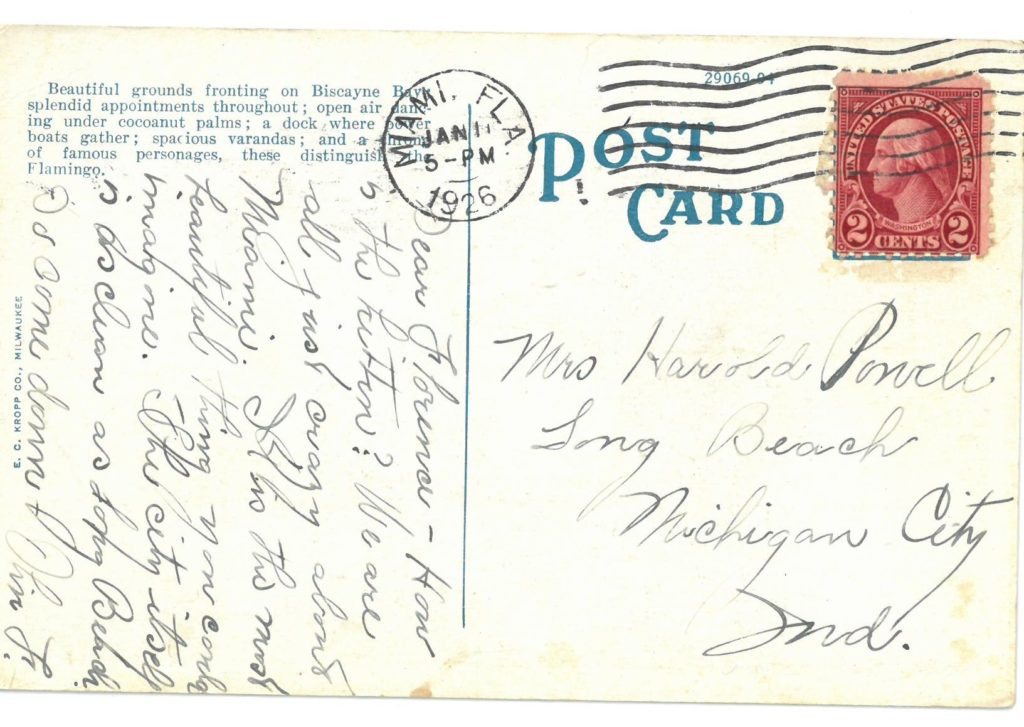 Beautiful grounds fronting on Biscayne Bay;
splendid appointments throughout; open air danc-
ing under cocoanut palms; a dock where power
boats gather; spacious varandas; and a throng
of famous personages, these distinguish the
Flamingo.
MIAMI, FLA.
JAN 11
5-PM
1926
29069-94
POST
CARD
UNITED STATES POSTAGE
WASHINGTON
2 CENTS 2
E. C. KROPP CO., MILWAUKEE
Dear Florence - How
is the hettin? We are
all just crazy about
Miami. It is the most
beautiful thing you could
imagine. The city itself
is as clean as Long Beach.
Do come down
Mrs Harold Powell
Long Beach
Michigan City
Ind.